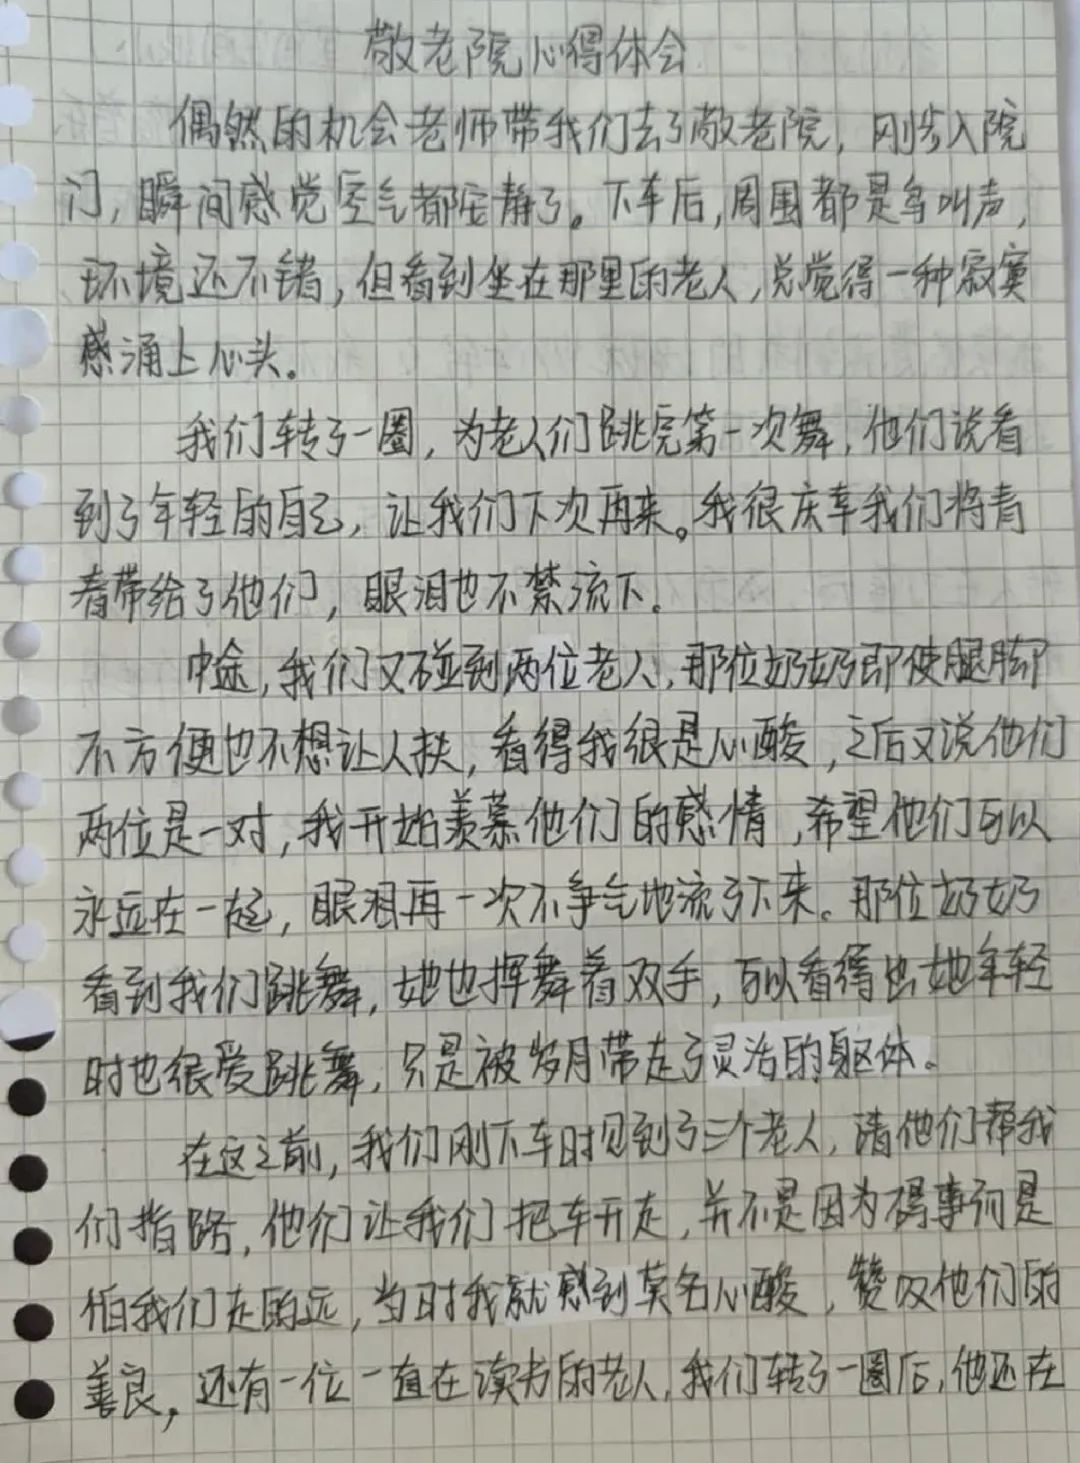 敬老院心得体会
偶然的机会老师带我们去了敬老院，刚步入院
门，瞬间感觉空气都安静了。下车后，周围都是鸟叫声，
环境还不错，但看到坐在那里的老人，总觉得一种寂寞
感涌上心头。
我们转了一圈，为老人们跳完第一次舞，他们说看
到了年轻的自己，让我们下次再来。我很庆幸我们将青
春带给了他们，眼泪也不禁流下。
中途，我们又碰到两位老人，那位奶奶即使腿脚
不方便也不想让人扶，看得我很是心酸，之后又说他们
两位是一对，我开始羡慕他们的感情，希望他们可以
永远在一起，眼泪再一次不争气地流了下来。那位奶奶
看到我们跳舞，她也挥舞着双手，可以看得出她年轻
时也很爱跳舞，只是被岁月带走了灵活的躯体。
在这之前，我们刚下车时见到了三个老人，请他们帮我
们指路，他们让我们把车开走，并不是因为碍事而是
怕我们走的远，当时我就感到莫名心酸，赞叹他们的
善良，还有一位一直在读书的老人，我们转了一圈后，他还在